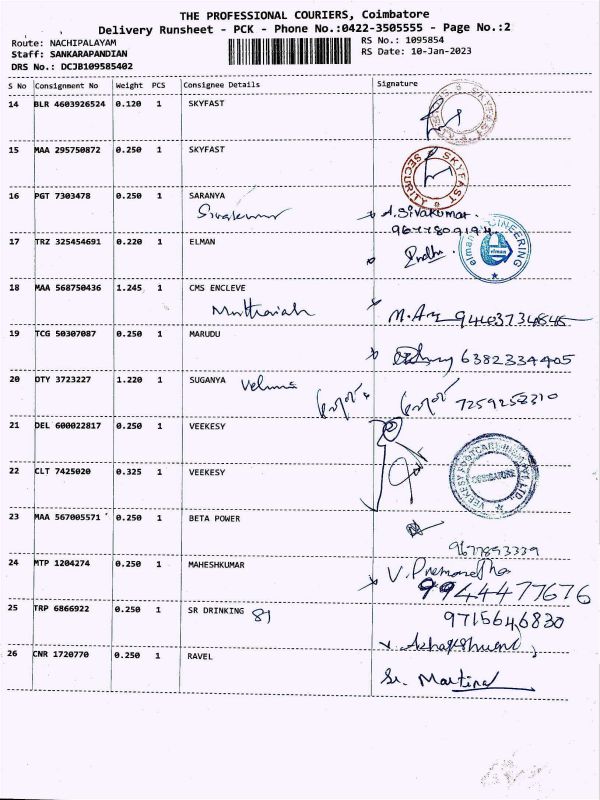 THE PROFESSIONAL COURIERS, Coimbatore
Delivery Runsheet - PCK - Phone No.:0422-3505555 - Page No.:2
Route: NACHIPALAYAM RS No.: 1095854
Staff: SANKARAPANDIAN RS Date: 10-Jan-2023
DRS No.: DCJB109585402
S No Consignment No Weight PCS Consignee Details Signature
14 BLR 4603926524 0.120 1 SKYFAST
15 MAA 295750872 0.250 1 SKYFAST
SKYFAST SECURITY
16 PGT 7303478 0.250 1 SARANYA
Sivakumar A. Sivakumar.
9677809194
17 TRZ 325454691 0.220 1 ELMAN
elman ENGINEERING
18 MAA 568750436 1.245 1 CMS ENCLEVE
Muthaiah
19 TCG 50307087 0.250 1 MARUDU
6382334405
20 OTY 3723227 1.220 1 SUGANYA
7259258310
21 DEL 600022817 0.250 1 VEEKESY
22 CLT 7425020 0.325 1 VEEKESY
VEEKESY FOOTCARE (INDIA) PVT. LTD.
COIMBATORE
23 MAA 567005571 0.250 1 BETA POWER
9677893339
24 MTP 1204274 0.250 1 MAHESHKUMAR
9944477676
25 TRP 6866922 0.250 1 SR DRINKING
9715646830
26 CNR 1720770 0.250 1 RAVEL
Sr. Martina